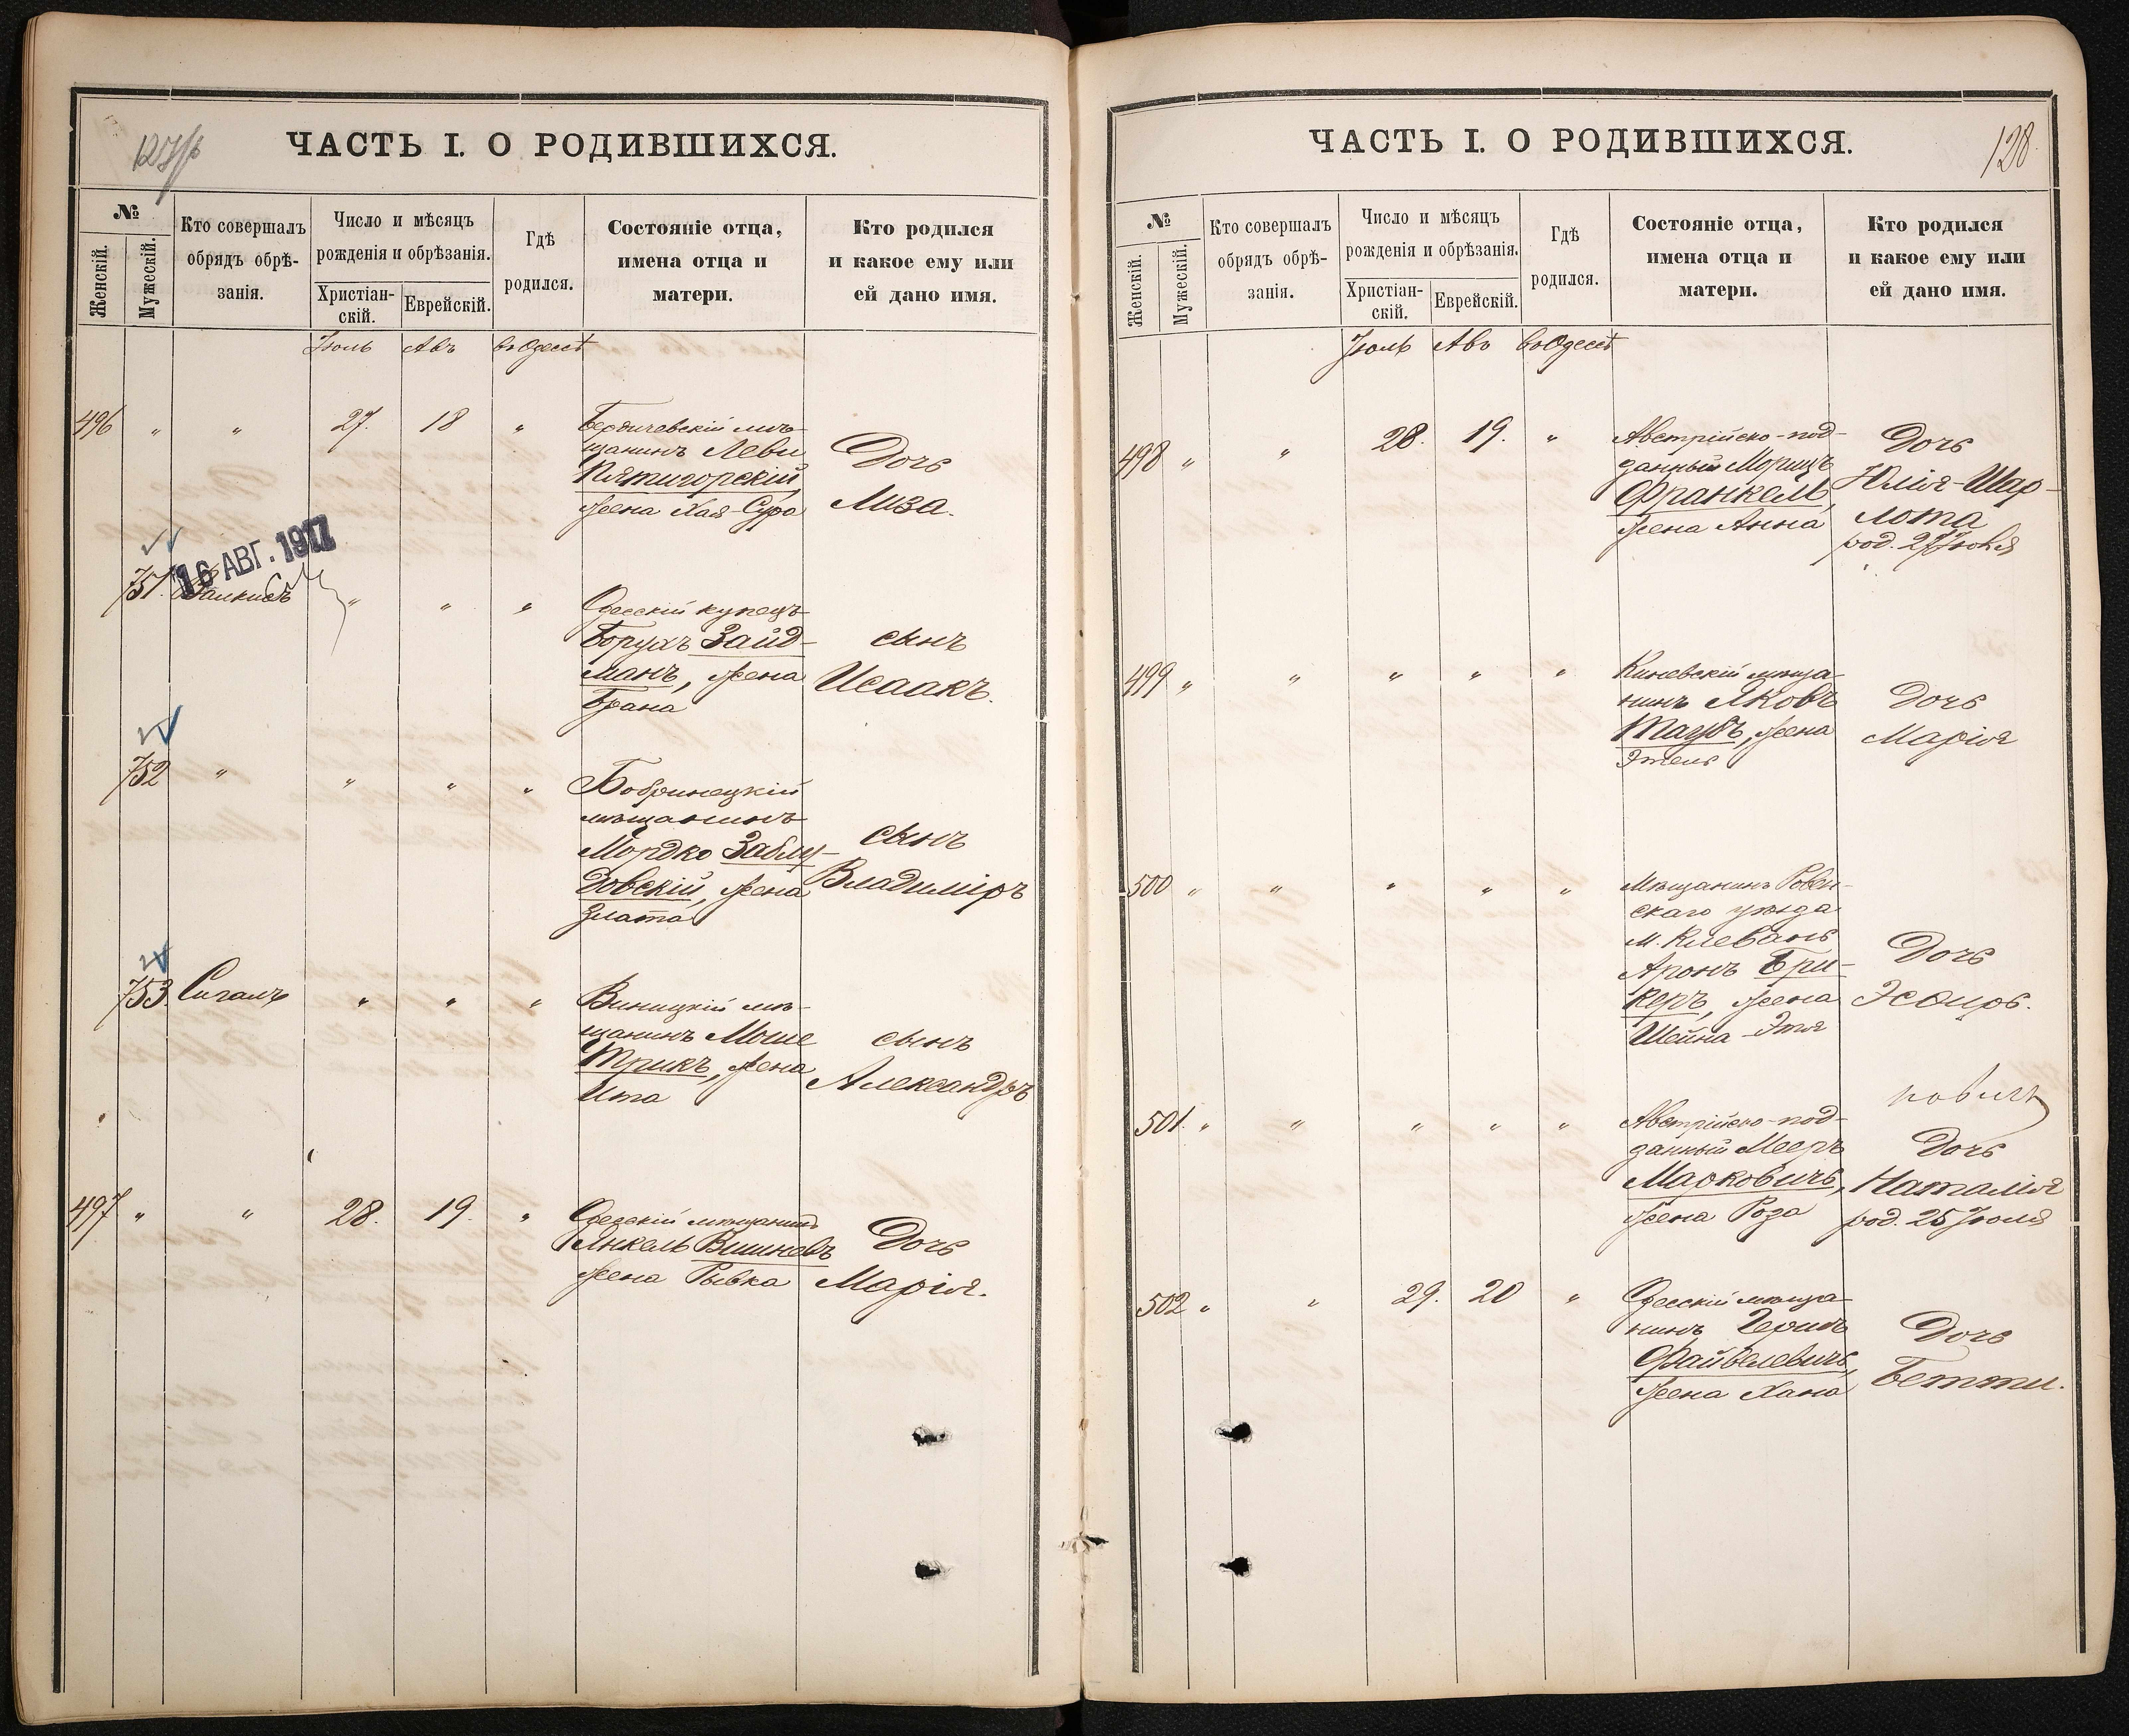 ЧАСТЬ I. О РОДИВШИХСЯ.
№
Женскій.
Мужескій.
Кто совершалъ
обрядъ обрѣ-
занія.
Число и мѣсяцъ
рожденія и обрѣзанія.
Христіан-
скій.
Еврейскій.
Гдѣ
родился.
Состояніе отца,
имена отца и
матери.
Кто родился
и какое ему или
ей дано имя.
Іюль Авъ въ Одессѣ
496 " " 27. 18 "
Бердичевскій мѣ-
щанинъ Леви
Пятигорскій,
жена Хая-Сура
Дочь
Лиза.
16 АВГ. 1917
751. " " "
Одесскій купецъ
Борухъ Зайд-
манъ, жена
Брана
сынъ
Исаакъ.
752 " " " "
Бобринецкій
мѣщанинъ
Мордко Заблу-
довскій, жена
Злата
сынъ
Владиміръ
753 Сигалъ " " "
Виницкій мѣ-
щанинъ Моше
Трикъ, жена
Ита
сынъ
Александръ
497 " " 28. 19. "
Одесскій мѣщанинъ
Янкель Вишневъ
жена Рывка
Дочь
Марія.
ЧАСТЬ I. О РОДИВШИХСЯ.
128
№
Женскій.
Мужескій.
Кто совершалъ
обрядъ обрѣ-
занія.
Число и мѣсяцъ
рожденія и обрѣзанія.
Христіан-
скій.
Еврейскій.
Гдѣ
родился.
Состояніе отца,
имена отца и
матери.
Кто родился
и какое ему или
ей дано имя.
Іюль Авъ въ Одессѣ
498 " " 28. 19. "
Австрійско-под-
данный Морицъ
Франкель,
жена Анна
Дочь
Юлія-Шар-
лота
род. 27 Іюля
499 " " " " "
мѣща-
нинъ Яковъ
Таубъ, жена
Этель
Дочь
Марія
500 " " " " "
Мѣщанинъ Ровен-
скаго уѣзда
м. Клевань
Аронъ Бри-
керъ, жена
Шейна-Этя
Дочь
Эсѳирь.
501. " " " " "
Австрійско-под-
данный Мееръ
Марковичъ,
жена Роза
новичъ
Дочь
Наталія
род. 25 Іюля
502 " " 29. 20 "
Одесскій мѣща-
нинъ Гершъ
Файвелевичъ,
жена Хана
Дочь
Бетти.